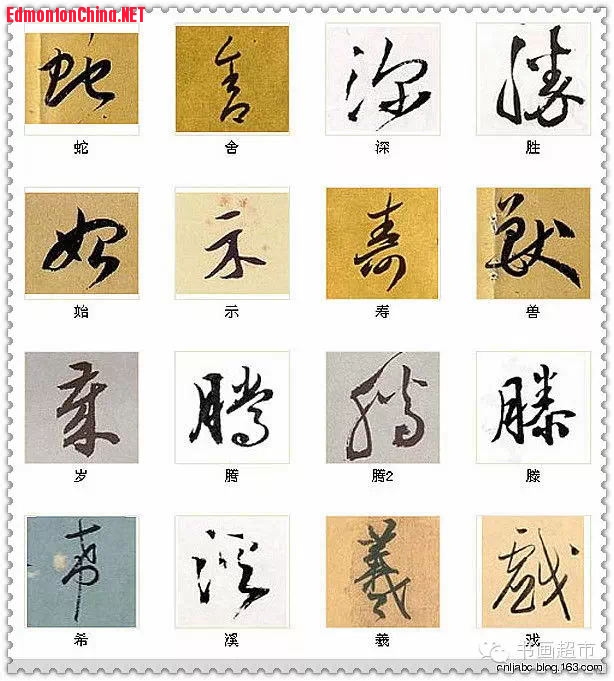 EdmontonChina.NET
蛇 舍 深 胜
始 示 寿 兽
岁 腾 腾2 滕
希 溪 羲 戏
书画超市
cnljabc.blog.163.com